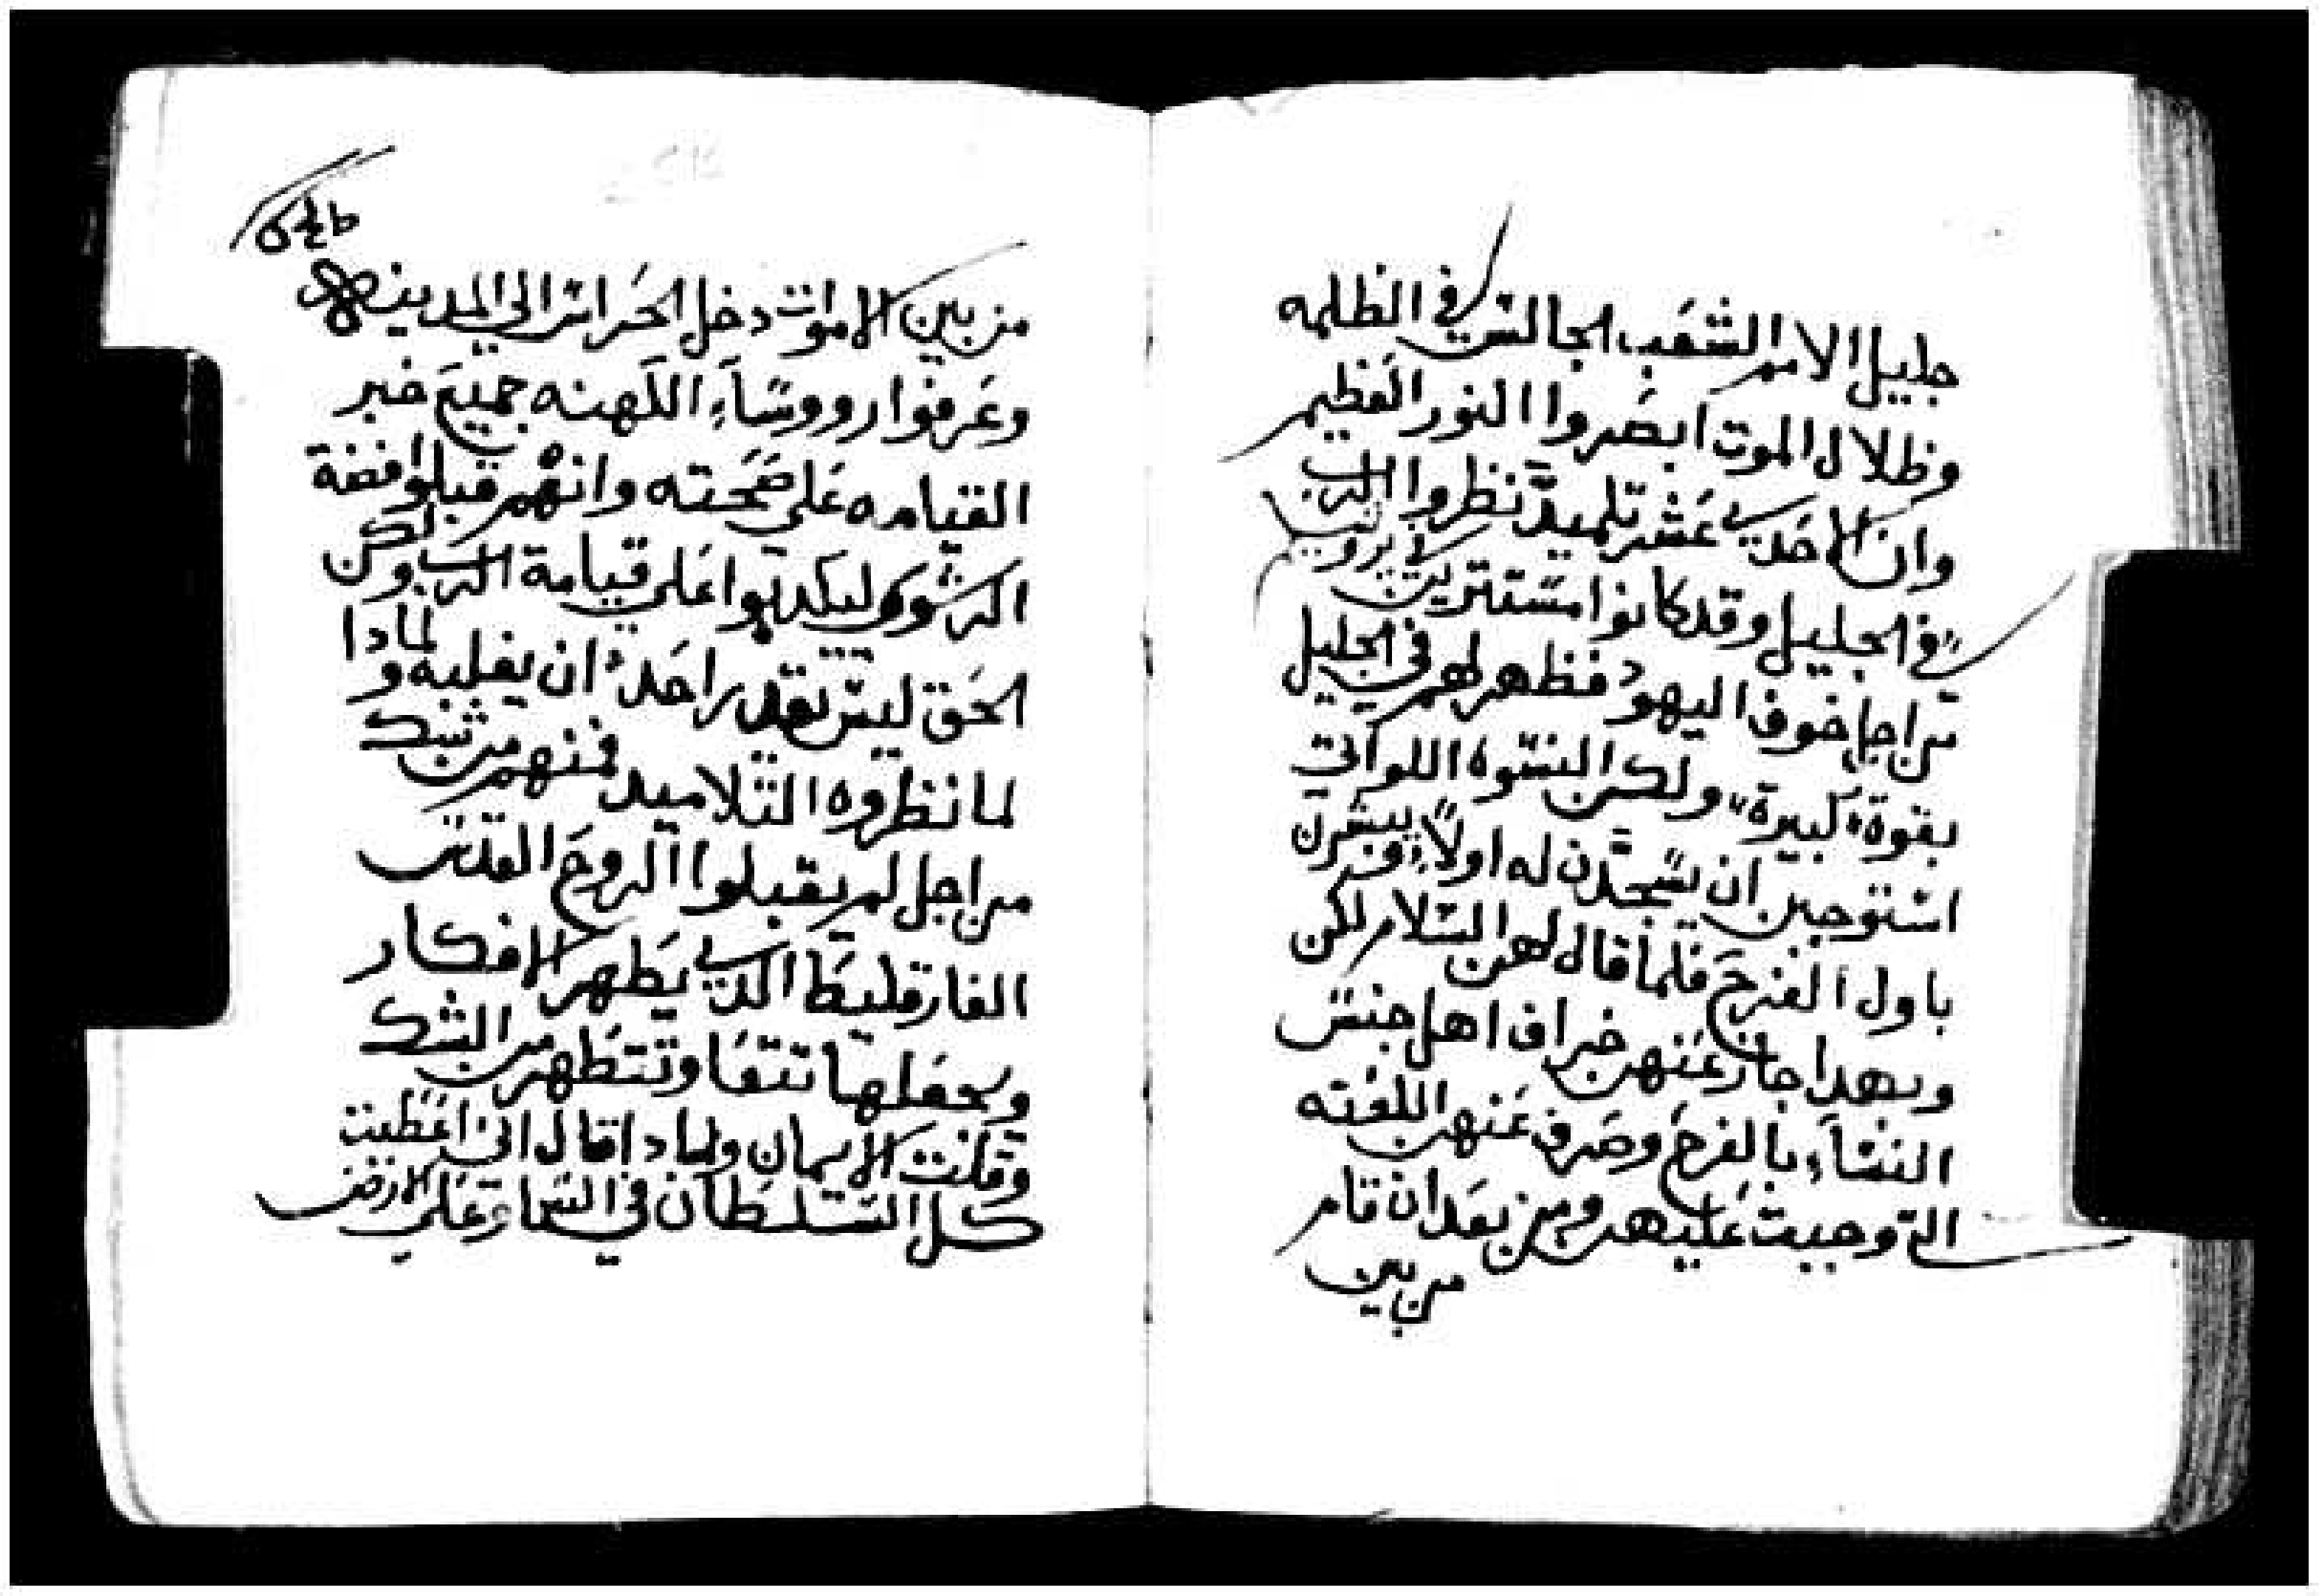 جليل الامم الشعب الجالس في الظلمه
وظلال الموت ابصروا النور العظيم
وان الاحدي عشر تلميد نظروا الرب
في الجليل وقد كانوا مستترين
من اجل خوف اليهود فظهر لهم في الجليل
بقوة كبيرة ولكن النسوه اللواتي
استوجبن ان يسجدن له اولاً يبشرن
باول الفرح فلما قال لهن السلام لكن
وبهدا جاز عنهن خبر اهل جنس
النساء بالفرح وصرف عنهن اللعنه
التي وجبت عليهم ومن بعد ان قام
من بين
من بين الاموات دخل الحراس الي المدينه
وعرفوا رووساء الكهنه جميع خبر
القيامه علي صحته وانهم قبلوا فضة
الرشوه ليكدبوا علي قيامة الرب ولكن
الحق ليس يقدر احد ان يغلبه ولمادا
لما نظروه التلاميد فمنهم من شك
من اجل لم يقبلوا الروح القدس
الفارقليط الدي يطهر الافكار
ويجعلها تنقا وتتطهر من الشك
وقلت الايمان ولمادا قال اني اعطيت
كل السلطان في السما وعلي الارض